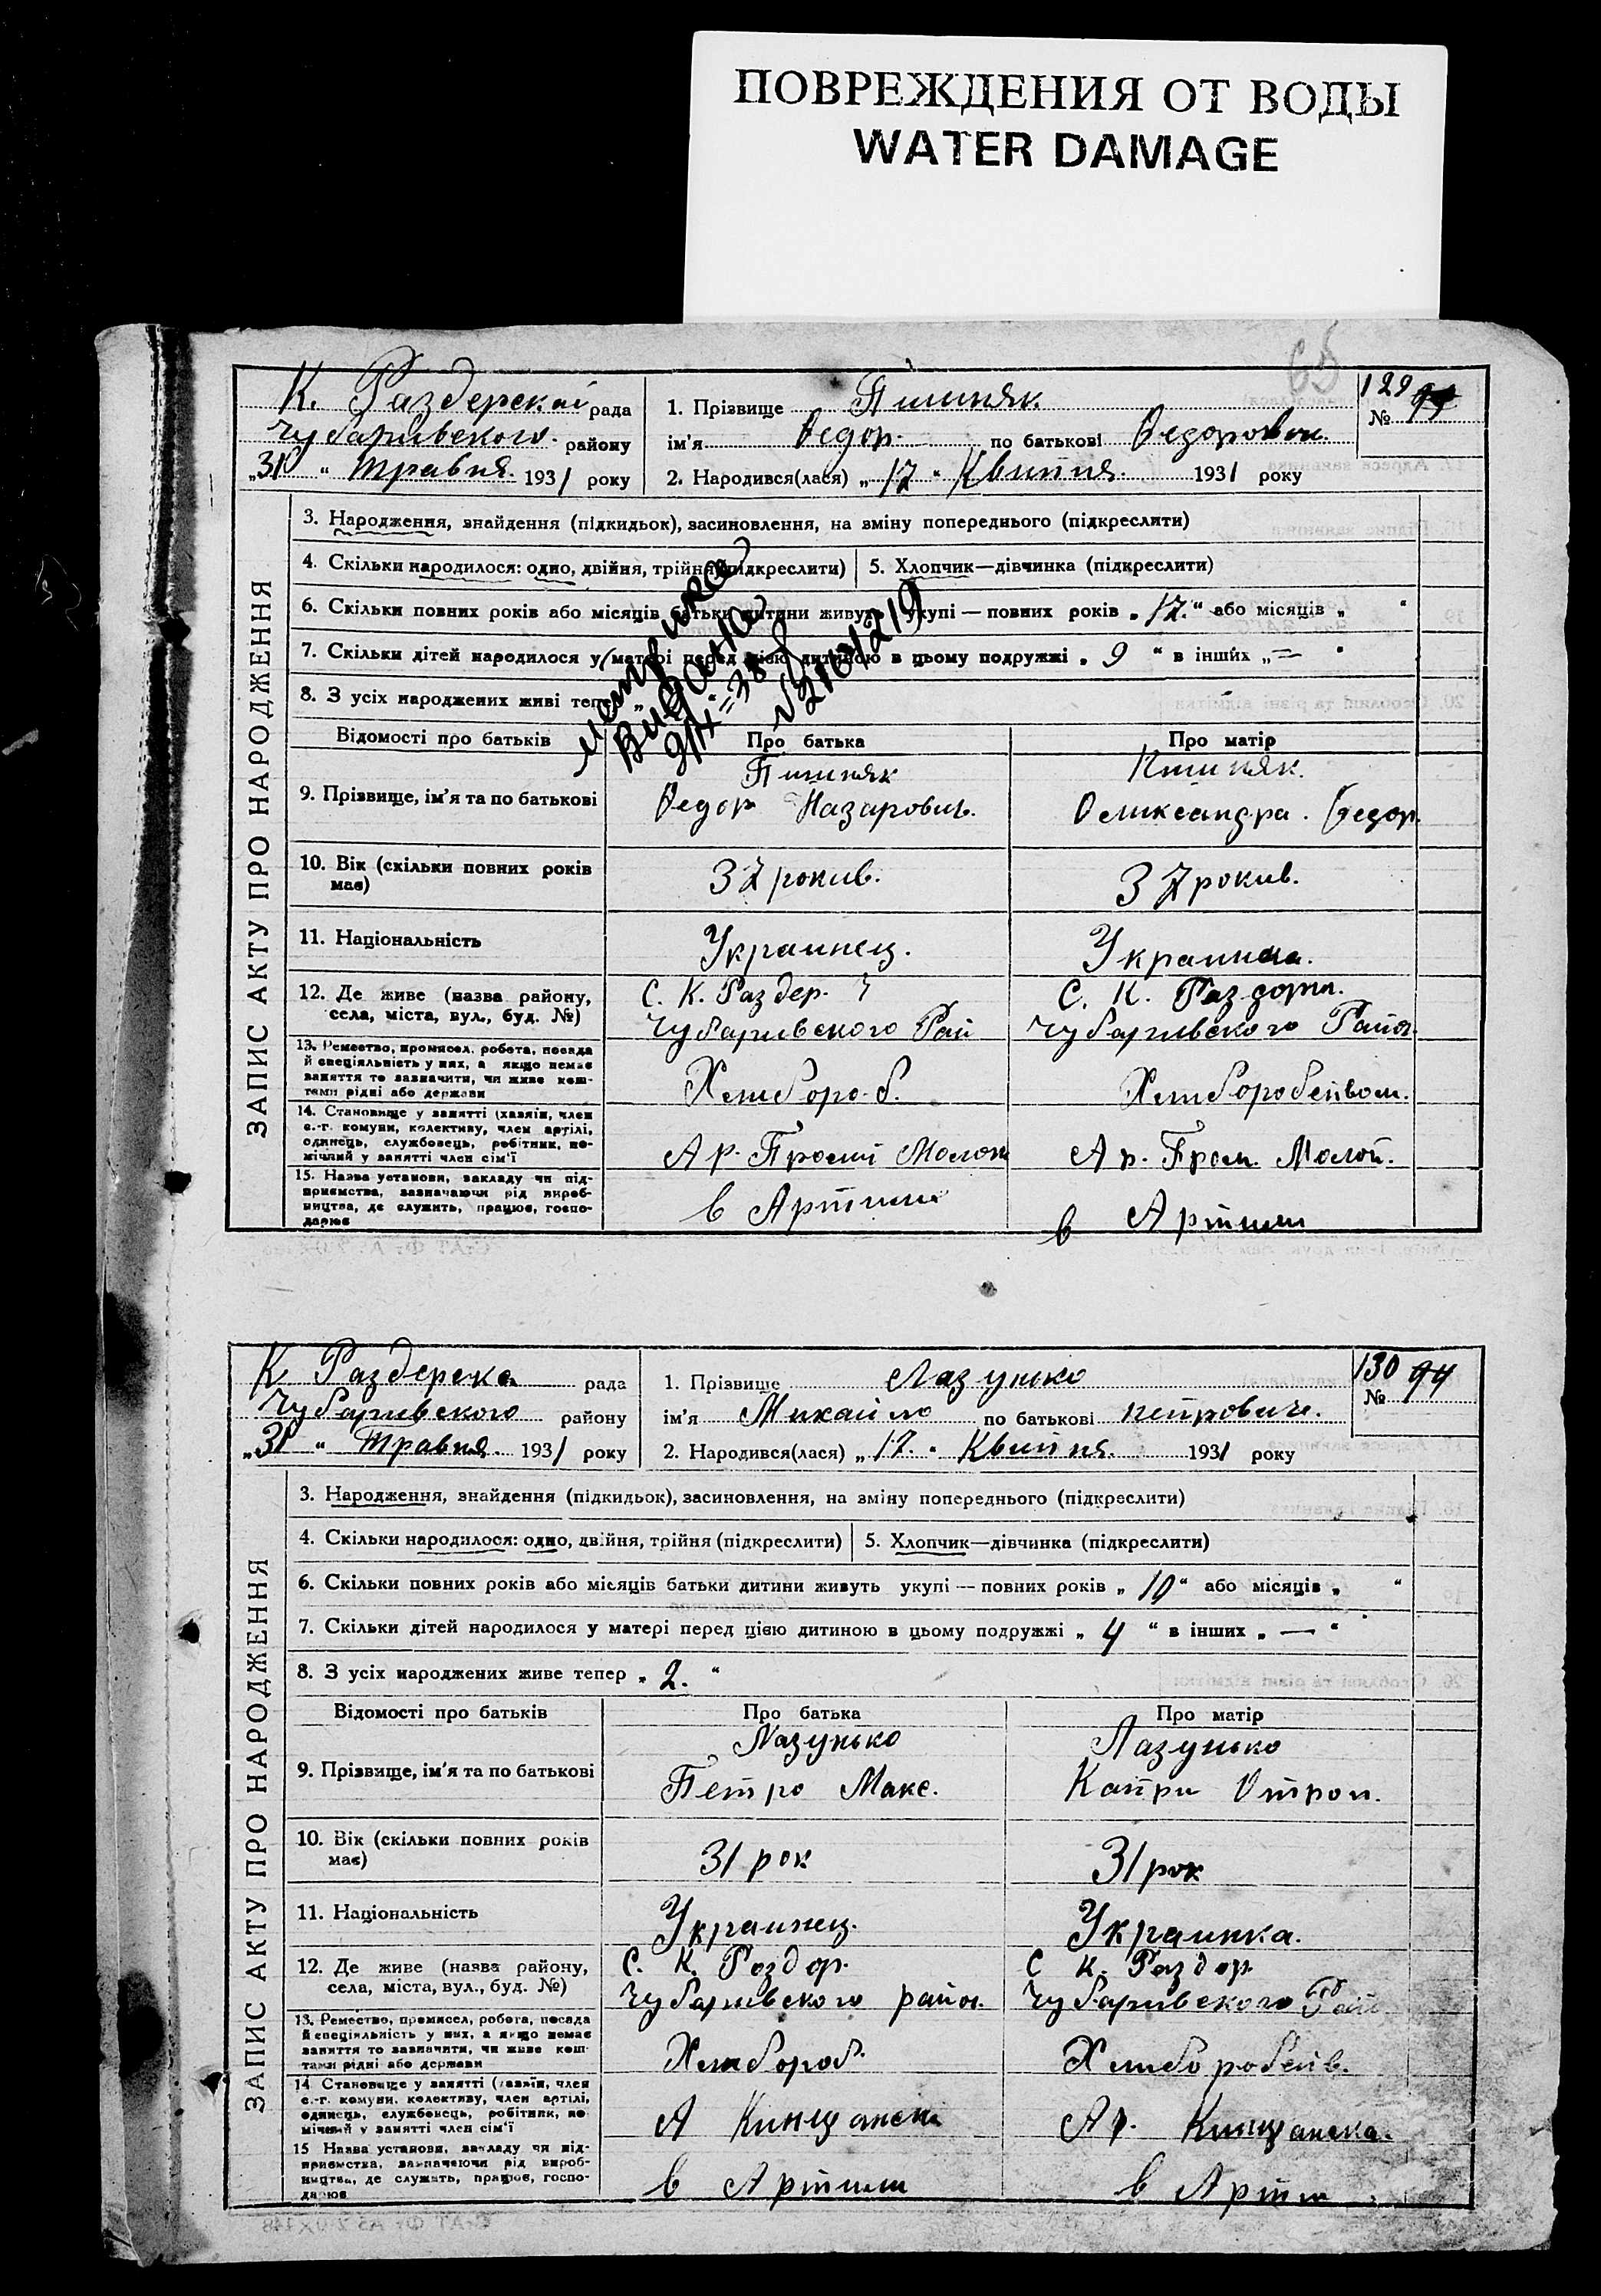 ПОВРЕЖДЕНИЯ ОТ ВОДЫ
WATER DAMAGE
65
К. Раздерскаі рада
Чубаривского району
„31“ Травня 1931 року
1. Прізвище Пишняк
ім'я Федор по батькові Федорович
2. Народився(лася) „17“ Квитня 1931 року
129
№
ЗАПИС АКТУ ПРО НАРОДЖЕННЯ
3. Народження, знайдення (підкидьок), засиновлення, на зміну попереднього (підкреслити)
4. Скільки народилося: одно, двійня, трійня (підкреслити)
5. Хлопчик—дівчинка (підкреслити)
6. Скільки повних років або місяців батьки дитини живуть укупі — повних років „17“ або місяців „ “
7. Скільки дітей народилося у матері перед цією дитиною в цьому подружжі „9“ в інших „—“
8. З усіх народжених живі тепер „
Метрика
Видана
9/IX=38
Відомості про батьків
Про батька
Про матір
9. Прізвище, ім'я та по батькові
Пишняк
Федор Назарович
Пишняк.
Олександра. Федор.
10. Вік (скільки повних років має)
37 рокив.
37 рокив.
11. Національність
Украинец.
Украинка.
12. Де живе (назва району, села, міста, вул., буд. №)
С. К. Раздер.
Чубаривского Рай
С. К. Раздори.
Чубаривского Район
13. Ремество, промисел, робота, посада й спеціяльність у них, а якщо немає заняття то зазначити, чи живе коштами рідні або держави
Хлибороб.
14. Становище у занятті (хазяїн, член с.-г. комуни, колективу, член артілі, одинець, службовець, робітник, помічний у занятті член сім'ї
Ар.
Ар.
15. Назва установи, закладу чи підприємства, зазначаючи рід виробництва, де служить, працює, господарює
в Артили
в Артили
К Раздерска рада
Чубаривского району
„31“ Травня 1931 року
1. Прізвище Лазунько
ім'я Михайло по батькові петрович.
2. Народився(лася) „17.“ Квитня. 1931 року
130 94
№
ЗАПИС АКТУ ПРО НАРОДЖЕННЯ
3. Народження, знайдення (підкидьок), засиновлення, на зміну попереднього (підкреслити)
4. Скільки народилося: одно, двійня, трійня (підкреслити)
5. Хлопчик—дівчинка (підкреслити)
6. Скільки повних років або місяців батьки дитини живуть укупі — повних років „10“ або місяців „ “
7. Скільки дітей народилося у матері перед цією дитиною в цьому подружжі „4“ в інших „—“
8. З усіх народжених живе тепер „2.“
Відомості про батьків
Про батька
Про матір
9. Прізвище, ім'я та по батькові
Лазунько
Петро Макс.
Лазунько
Катри
10. Вік (скільки повних років має)
31 рок
31 рок
11. Національність
Украинец.
Украинка.
12. Де живе (назва району, села, міста, вул., буд. №)
С. К. Роздор.
Чубаривского район.
С К. Раздор
Чубаривского Рай.
13. Ремество, промисел, робота, посада й спеціяльність у них, а якщо немає заняття то зазначити, чи живе коштами рідні або держави
Хлибороб.
14. Становище у занятті (хазяїн, член с.-г. комуни, колективу, член артілі, одинець, службовець, робітник, помічний у занятті член сім'ї
А
Ар.
15 Назва установи, закладу чи підприємства, зазначаючи рід виробництва, де служить, працює, господарює
в Артили
в Артил